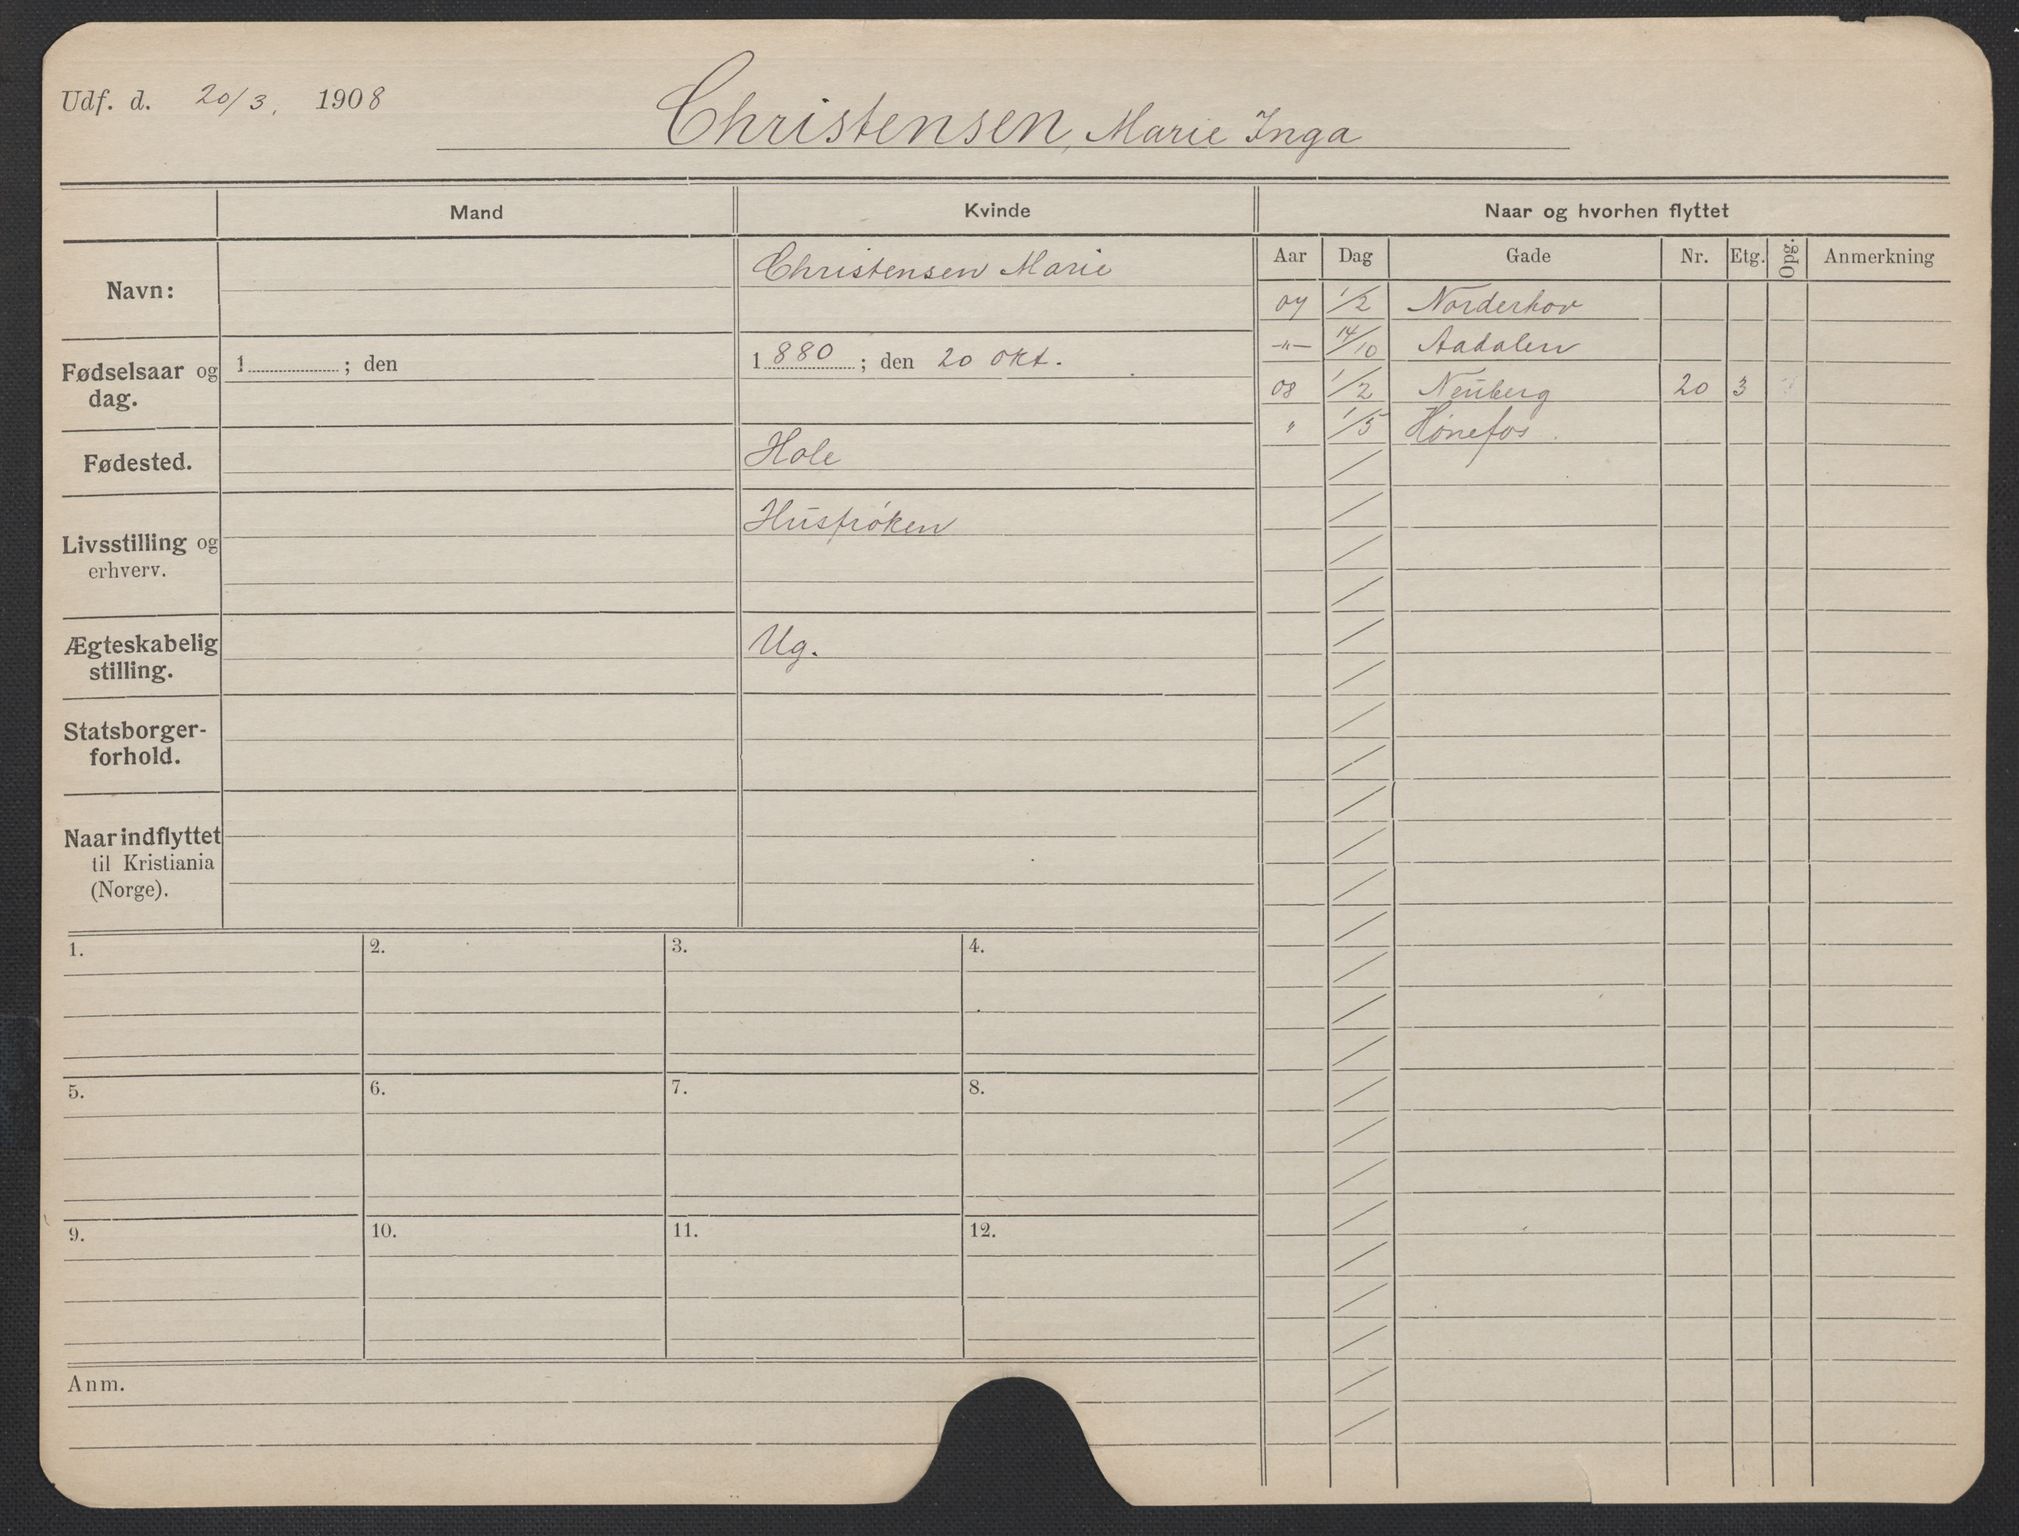 Udf. d. 20/3. 1908
Christensen, Marie Inga
Mand Kvinde Naar og hvorhen flyttet
Aar Dag Gade Nr. Etg. Opg. Anmerkning
Navn: Christensen Marie
07 1/2 Norderhov
-"- 14/10 Aadalen
Fødselsaar og dag. 1 ; den 1880 ; den 20 okt.
08 1/2 Neuberg 20 3
" 1/5 Hønefos.
Fødested. Hole
Livsstilling og Husfrøken
erhverv.
Ægteskabelig Ug.
stilling.
Statsborger-
forhold.
Naar indflyttet
til Kristiania
(Norge).
1. 2. 3. 4.
5. 6. 7. 8.
9. 10. 11. 12.
Anm.